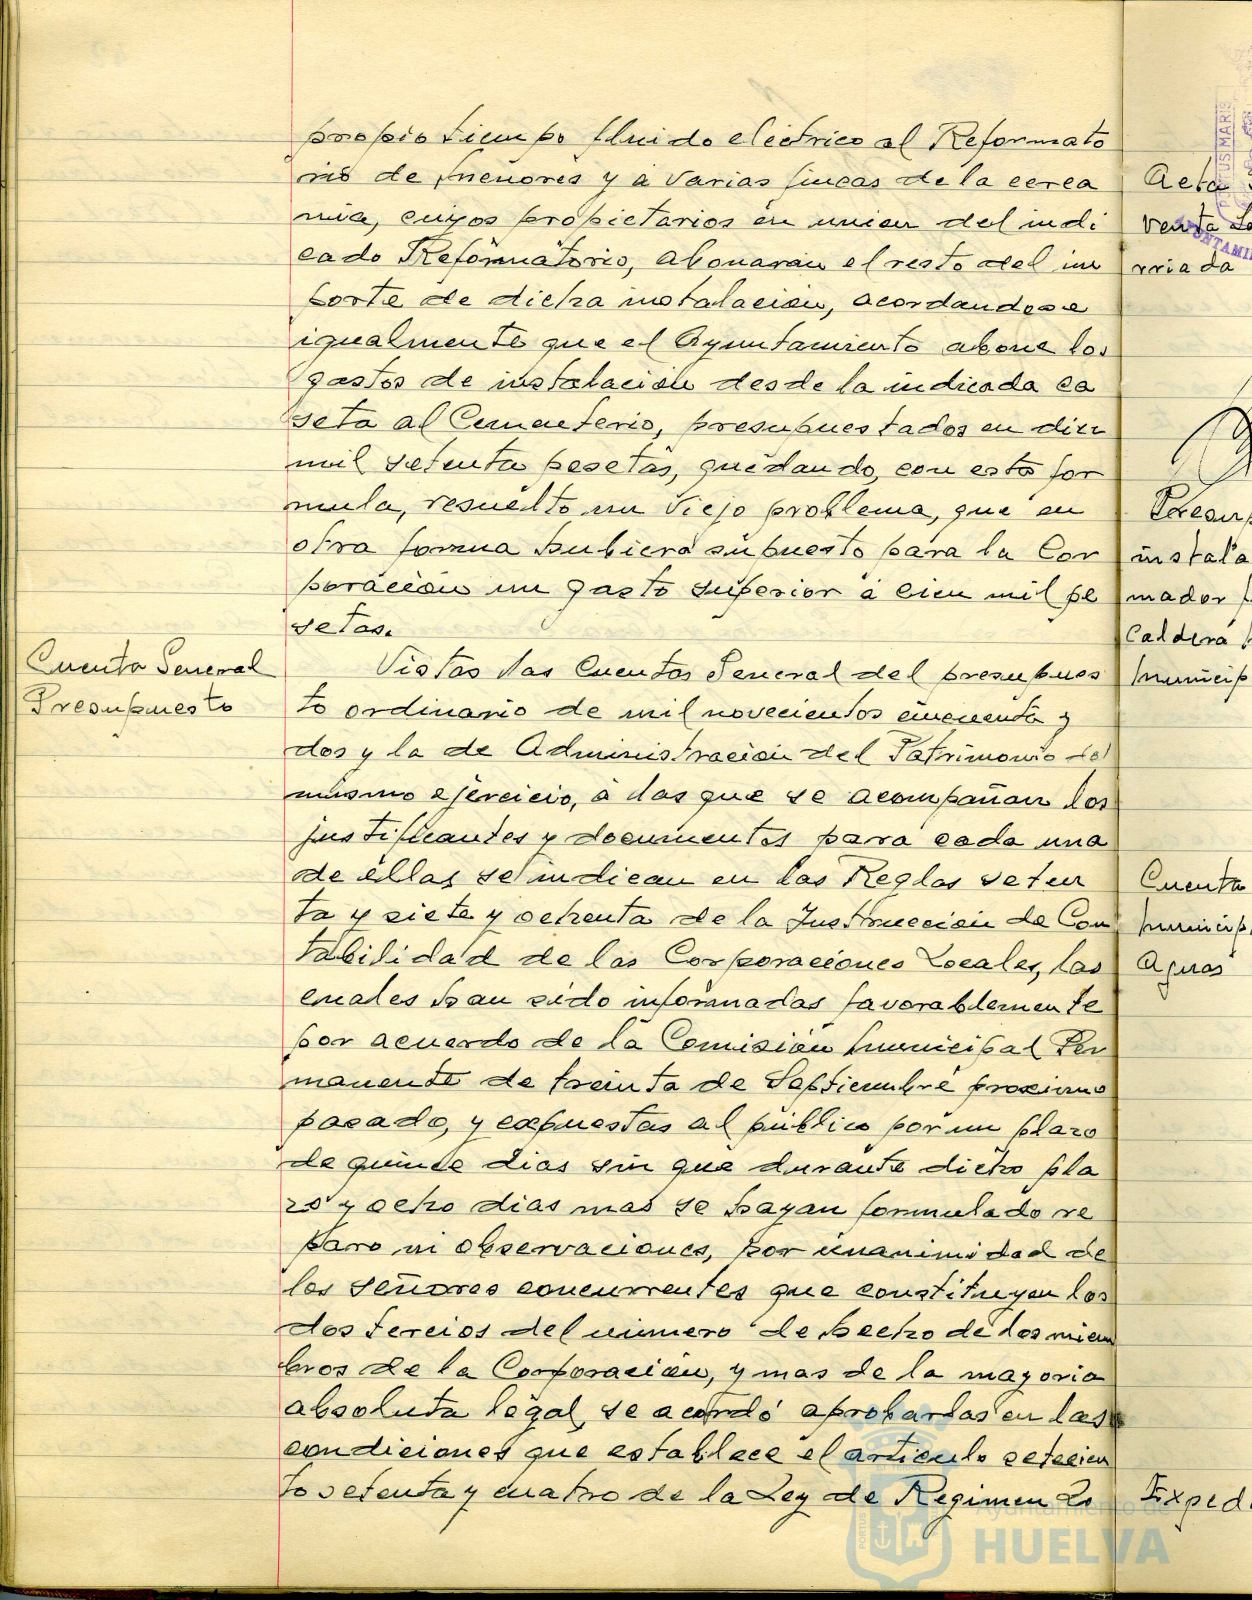 propio tiempo fluido eléctrico al Reformato
rio de Menores y a varias fincas de la cerca
nia, cuyos propietarios en union del indi
cado Reformatorio, abonarán el resto del im
porte de dicha instalación, acordandose
igualmente que el Ayuntamiento abone los
gastos de instalación desde la indicada ca
seta al Cementerio, presupuestados en diez
mil setenta pesetas, quedando, con esta for
mula, resuelto un viejo problema, que en
otra forma hubiera supuesto para la Cor
poración un gasto superior a cien mil pe
setas.
Cuenta General
Presupuesto
Vistas las Cuentas General del presupues
to ordinario de mil novecientos cincuenta y
dos y la de Administración del Patrimonio del
mismo ejercicio, a las que se acompañan los
justificantes y documentos para cada una
de ellas se indican en las Reglas seten
ta y siete y ochenta de la Instrucción de Con
tabilidad de las Corporaciones Locales, las
cuales han sido informadas favorablemente
por acuerdo de la Comisión Municipal Per
manente de treinta de Septiembre proximo
pasado, y expuestas al público por un plazo
de quince dias sin que durante dicho pla
zo y ocho dias mas se hayan formulado re
paro ni observaciones, por unanimidad de
los señores concurrentes que constituyen los
dos tercios del número de hecho de los miem
bros de la Corporación, y mas de la mayoria
absoluta legal, se acordó aprobarlas en las
condiciones que establece el articulo setecien
to setenta y cuatro de la Ley de Regimen Lo
Acta
venta
rriada
Presup
instala
mador
Caldera
municip
Cuenta
municip
Aguas
Exped
PORTUS MARIS
Ayuntamiento de
HUELVA